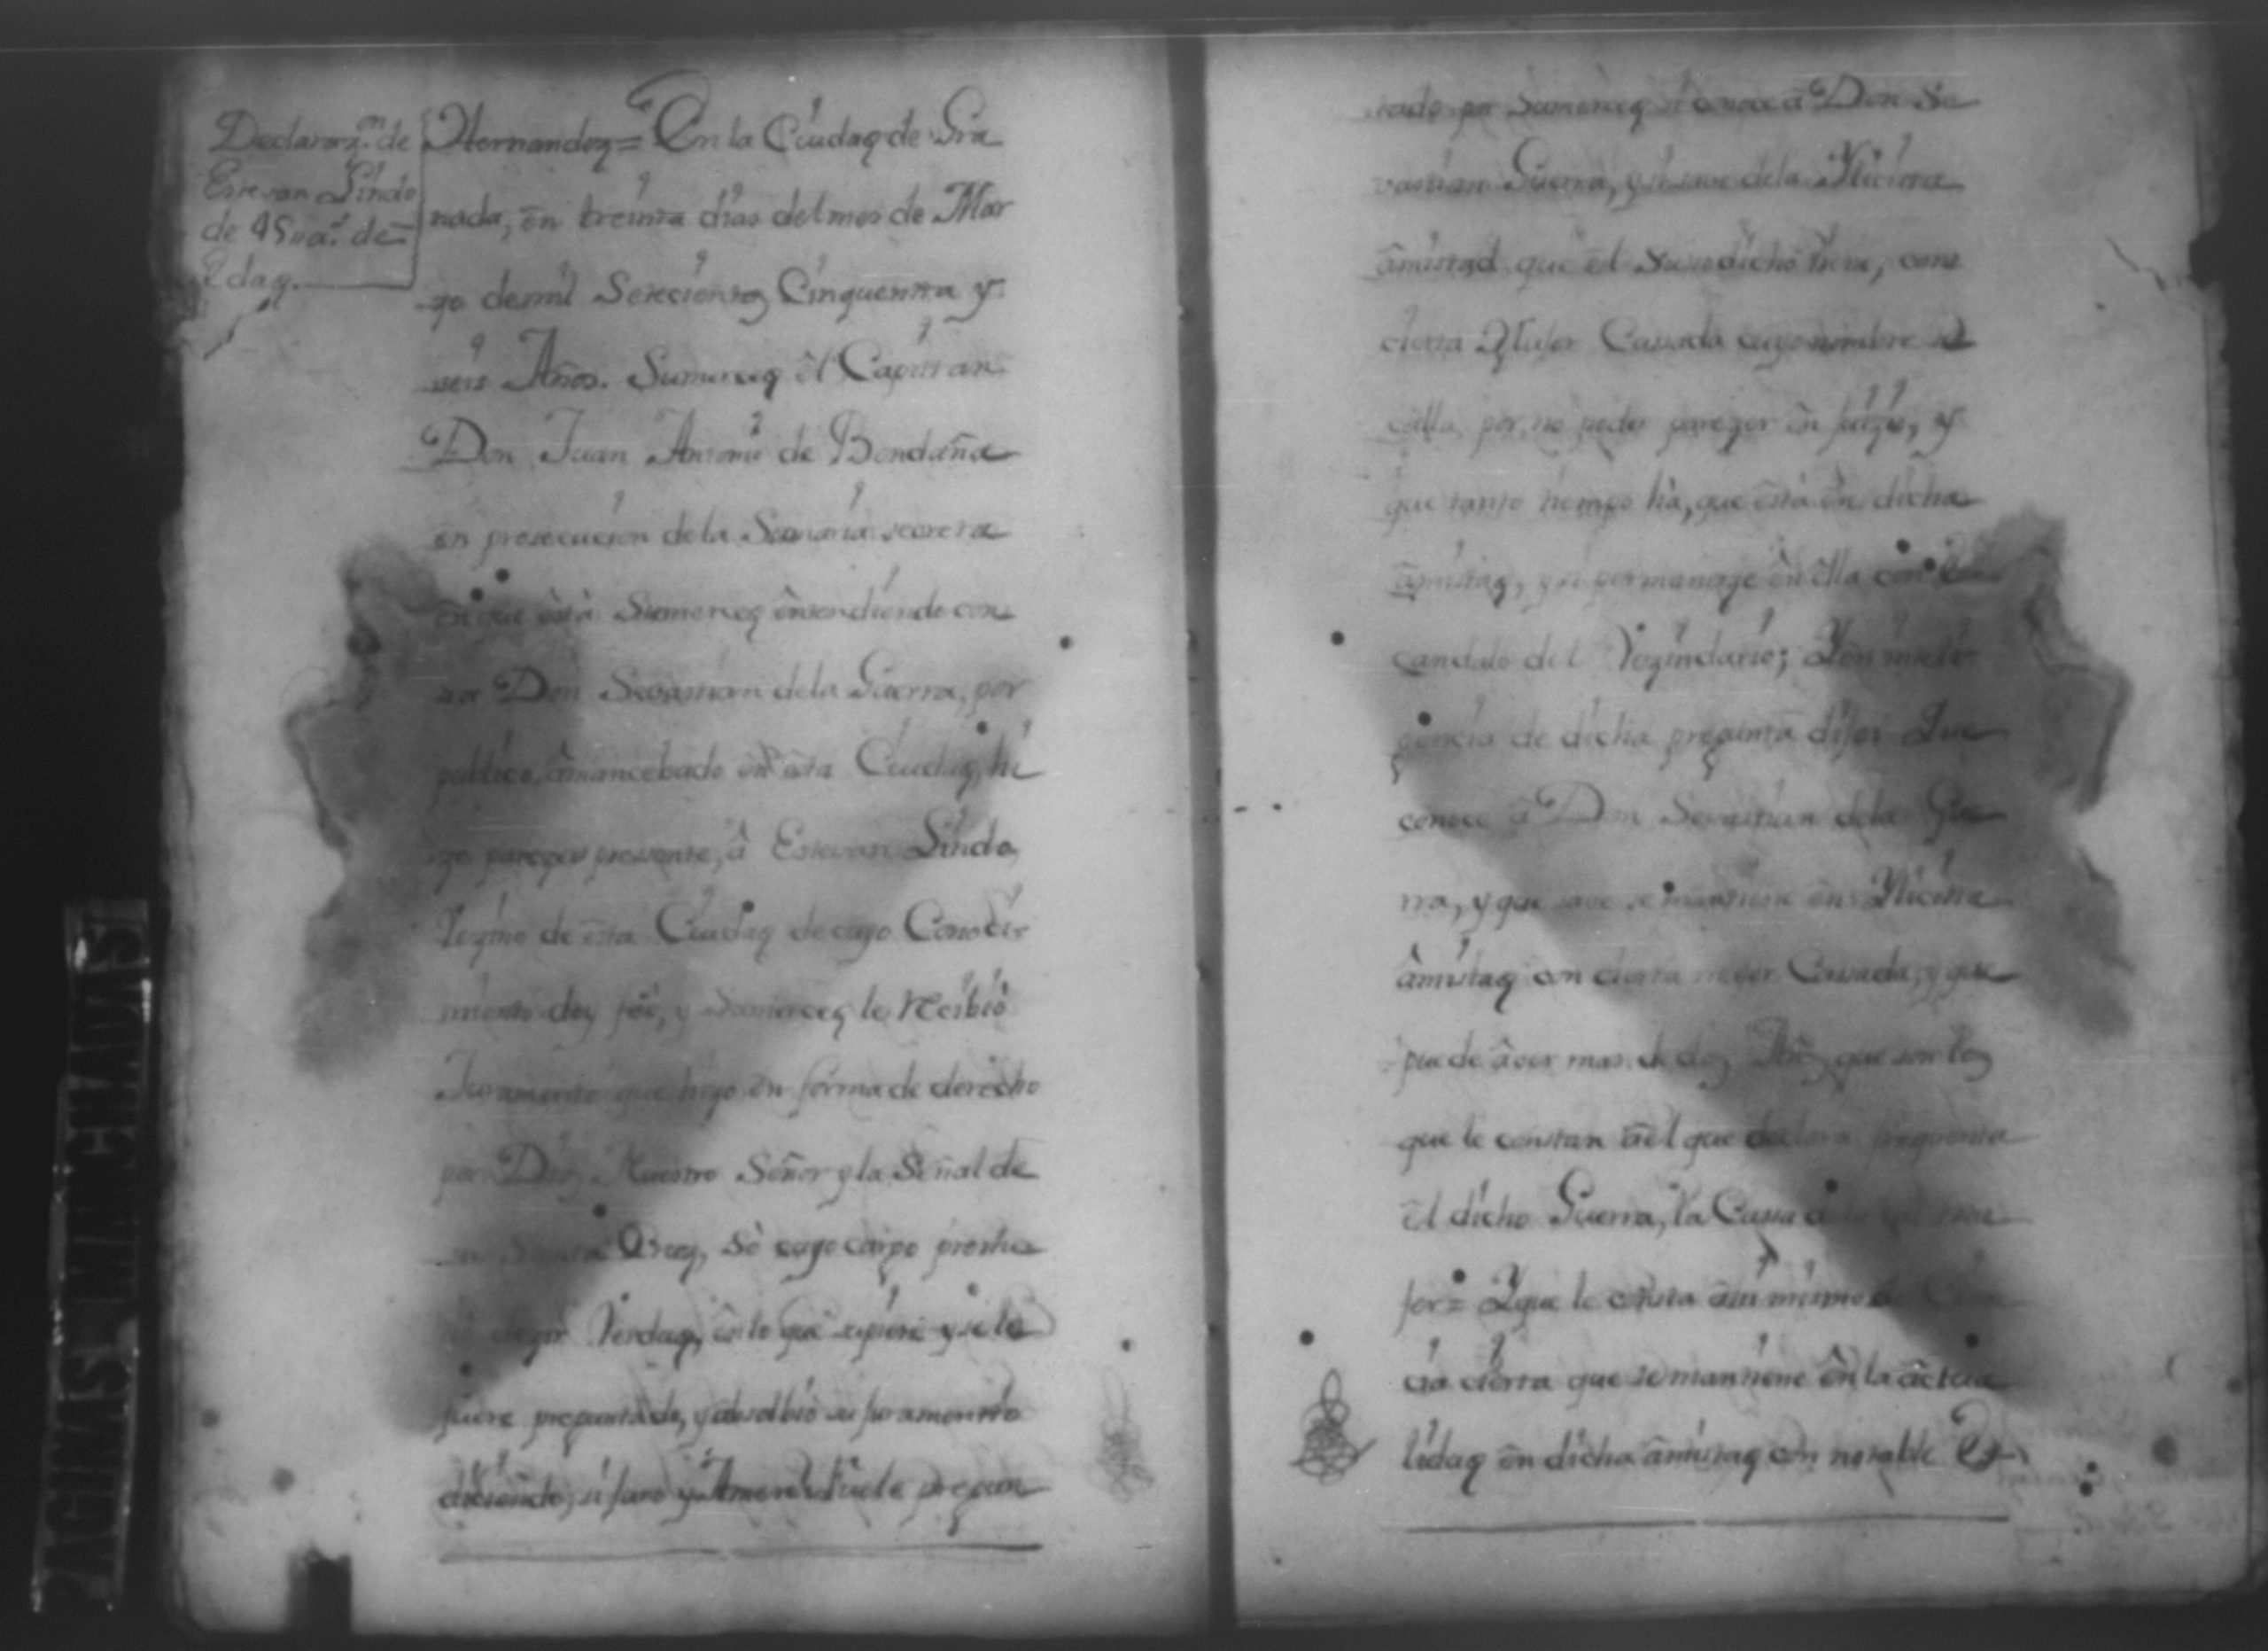 Declaraz.on de
Estevan Lindo
de 45 va.s de
Edaq.
Hernandez = En la Ciudaq de Gra
nada, en treinta dias del mes de Mar
zo de mil Setecientos Cinquenta y
seis Años. Sumerceq êl Capitan
Don Juan Antonio de Bendaña
en prosecucion de la Sumaria secreta
en que està Sumerceq êntendiendo con
tra Don Sevastian de la Guerra, por
publico âmancebado ên esta Ciudaq, hi
zo parezer presente, â Estevan Lindo,
Vezino de esta Ciudaq de cuyo Conoci
miento doy feê, y Sumerceq le Recibiò
Juramento que hizo en forma de derecho
por Dios Nuestro Señor y la Señal de
Cruz, Sò cuyo cargo prome
dezir Verdaq, en lo que supiere y se le
fuere preguntado, y absolbiò su juramento
diciendo, si juro y Amen. Fuele pregun
tado por Sumerceq si conoce â Don Se
vastian Guerra, y si save de la Ylicita
âmistad que êl Susodicho tiene, con
cierta Muger Casada cuyo nombre se
calla, por no poder parezer ên juizio, y
que tanto tiempo hà, que està ên dicha
âmistaq, y si permaneze ên êlla con Es
candalo del Vezindario; Yen inteli
gencia de dicha pregunta dijo: Que
conoce â Don Sevastian de la Gue
rra, y que save se mantiene en Ylicita
âmistaq con cierta muger Casada, y que
puede âver mas de dos Añ.s que son los
que le constan âel que declara frequenta
êl dicho Guerra, la Cassa
ger = Yque le consta âsi mismo de Cien
cia cierta que se mantiene ên la âctua
lidaq ên dicha âmistaq con notable Es
PAGINAS MANCHADAS